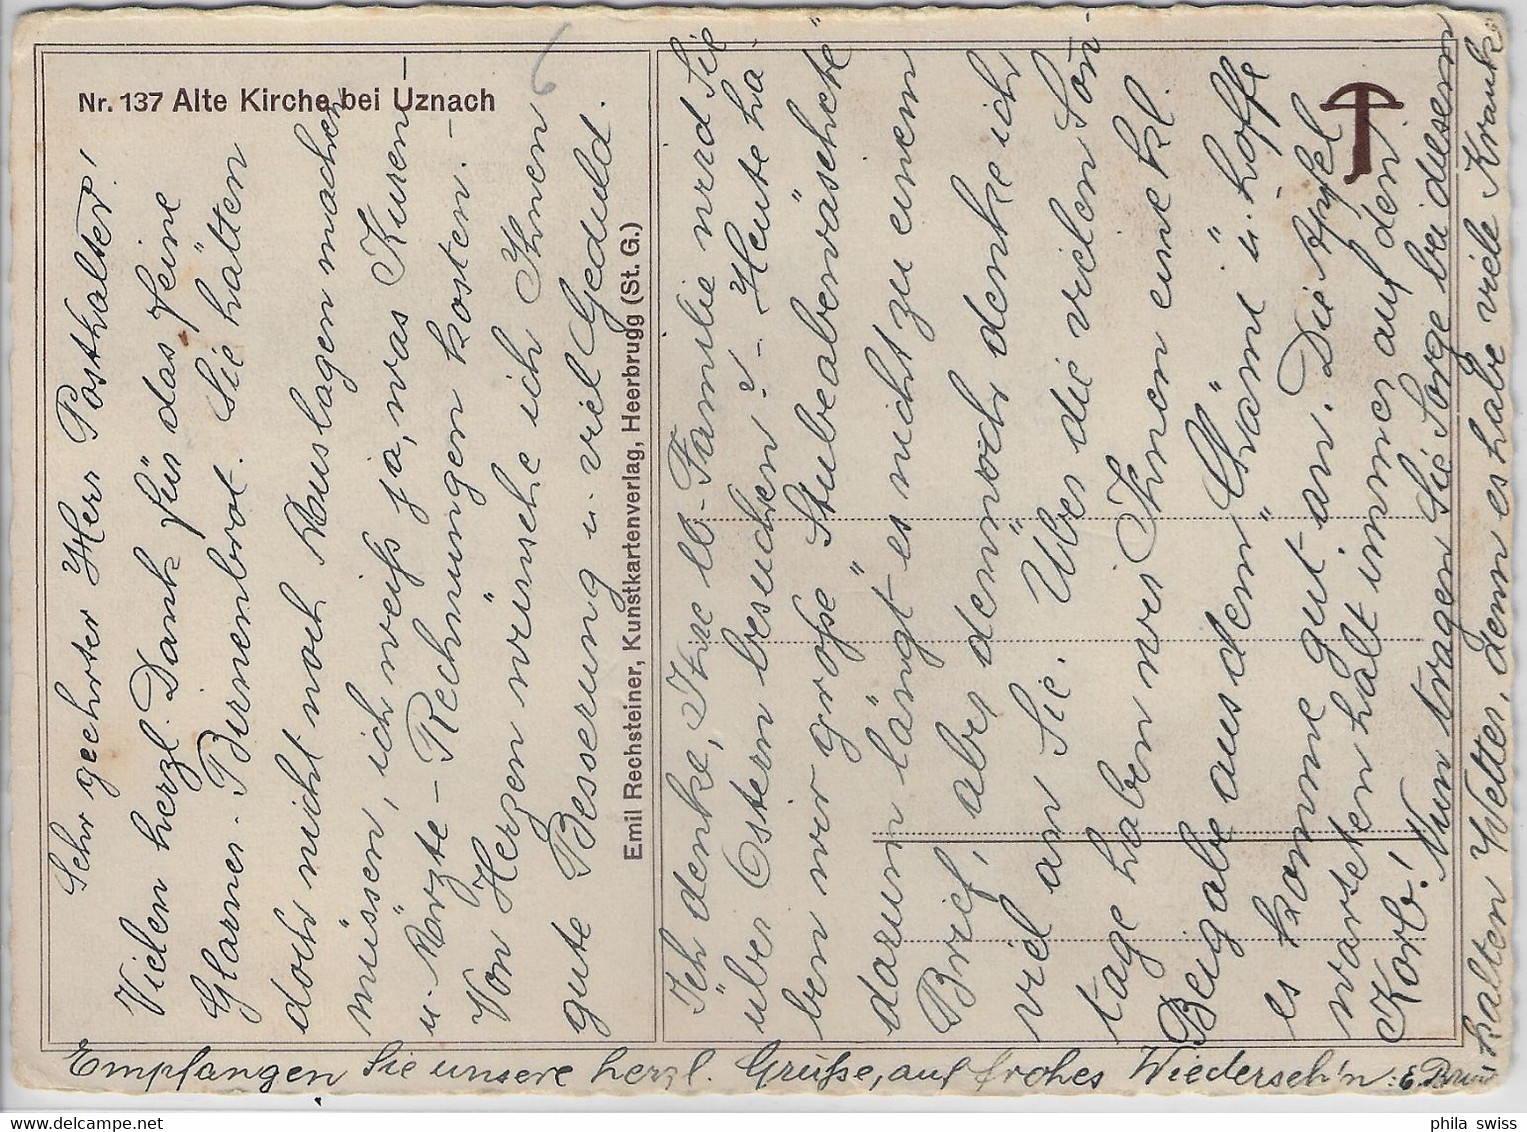 Nr. 137 Alte Kirche bei Uznach
Sehr geehrter Herr Posthalter!
Vielen herzl. Dank für das feine
Glarner-Birnenbrot. Sie hätten
doch nicht noch Auslagen machen
müssen, ich weiss ja, was Kuren
u. Arzte-Rechnungen kosten. –
Von Herzen wünsche ich Ihnen
gute Besserung u. viel Geduld.
Emil Rechsteiner, Kunstkartenverlag, Heerbrugg (St. G.)
Ich denke, Ihre Familie wird Sie
über Ostern besuchen? – Heute ha-
ben wir große Stubeabenwäschete
darum längt es nicht zu einem
Brief, aber dennoch denke ich
viel an Sie. Über die vielen Son-
tage haben wir Ihnen eine kl.
Beigabe aus dem u. hoffe
es komme gut an. Die Äpfel
warten halt immer auf den
Korb! Nun tragen Sie Sorge bei diesem
kalten Wetter, denn es habe viele Kranke
Empfangen Sie unsere herzl. Grüße, auf frohes Wiederseh'n: E.
phila swiss